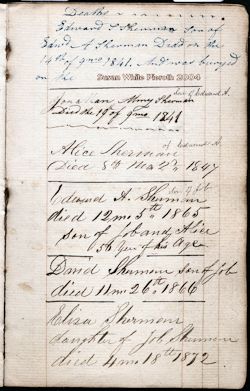 Deaths
Edward S Sherman son of
David A Sherman Died on the
14th of 9mo 1841. And was buryed
on the
Susan White Pieroth 2004
son of Edward A.
Jonathan Almy Sherman
Died the 19 of 9mo 1841
of Edward A.
Alice Sherman
Died 8th Mo 27 1847
son of Job
Edward A. Sherman
died 12mo 3th 1865
son of Job and Alice
56 Year of his Age
David Sherman son of Job
died 11mo 26th 1866
Eliza Sherman
daughter of Job Sherman
died 4mo 18th 1872